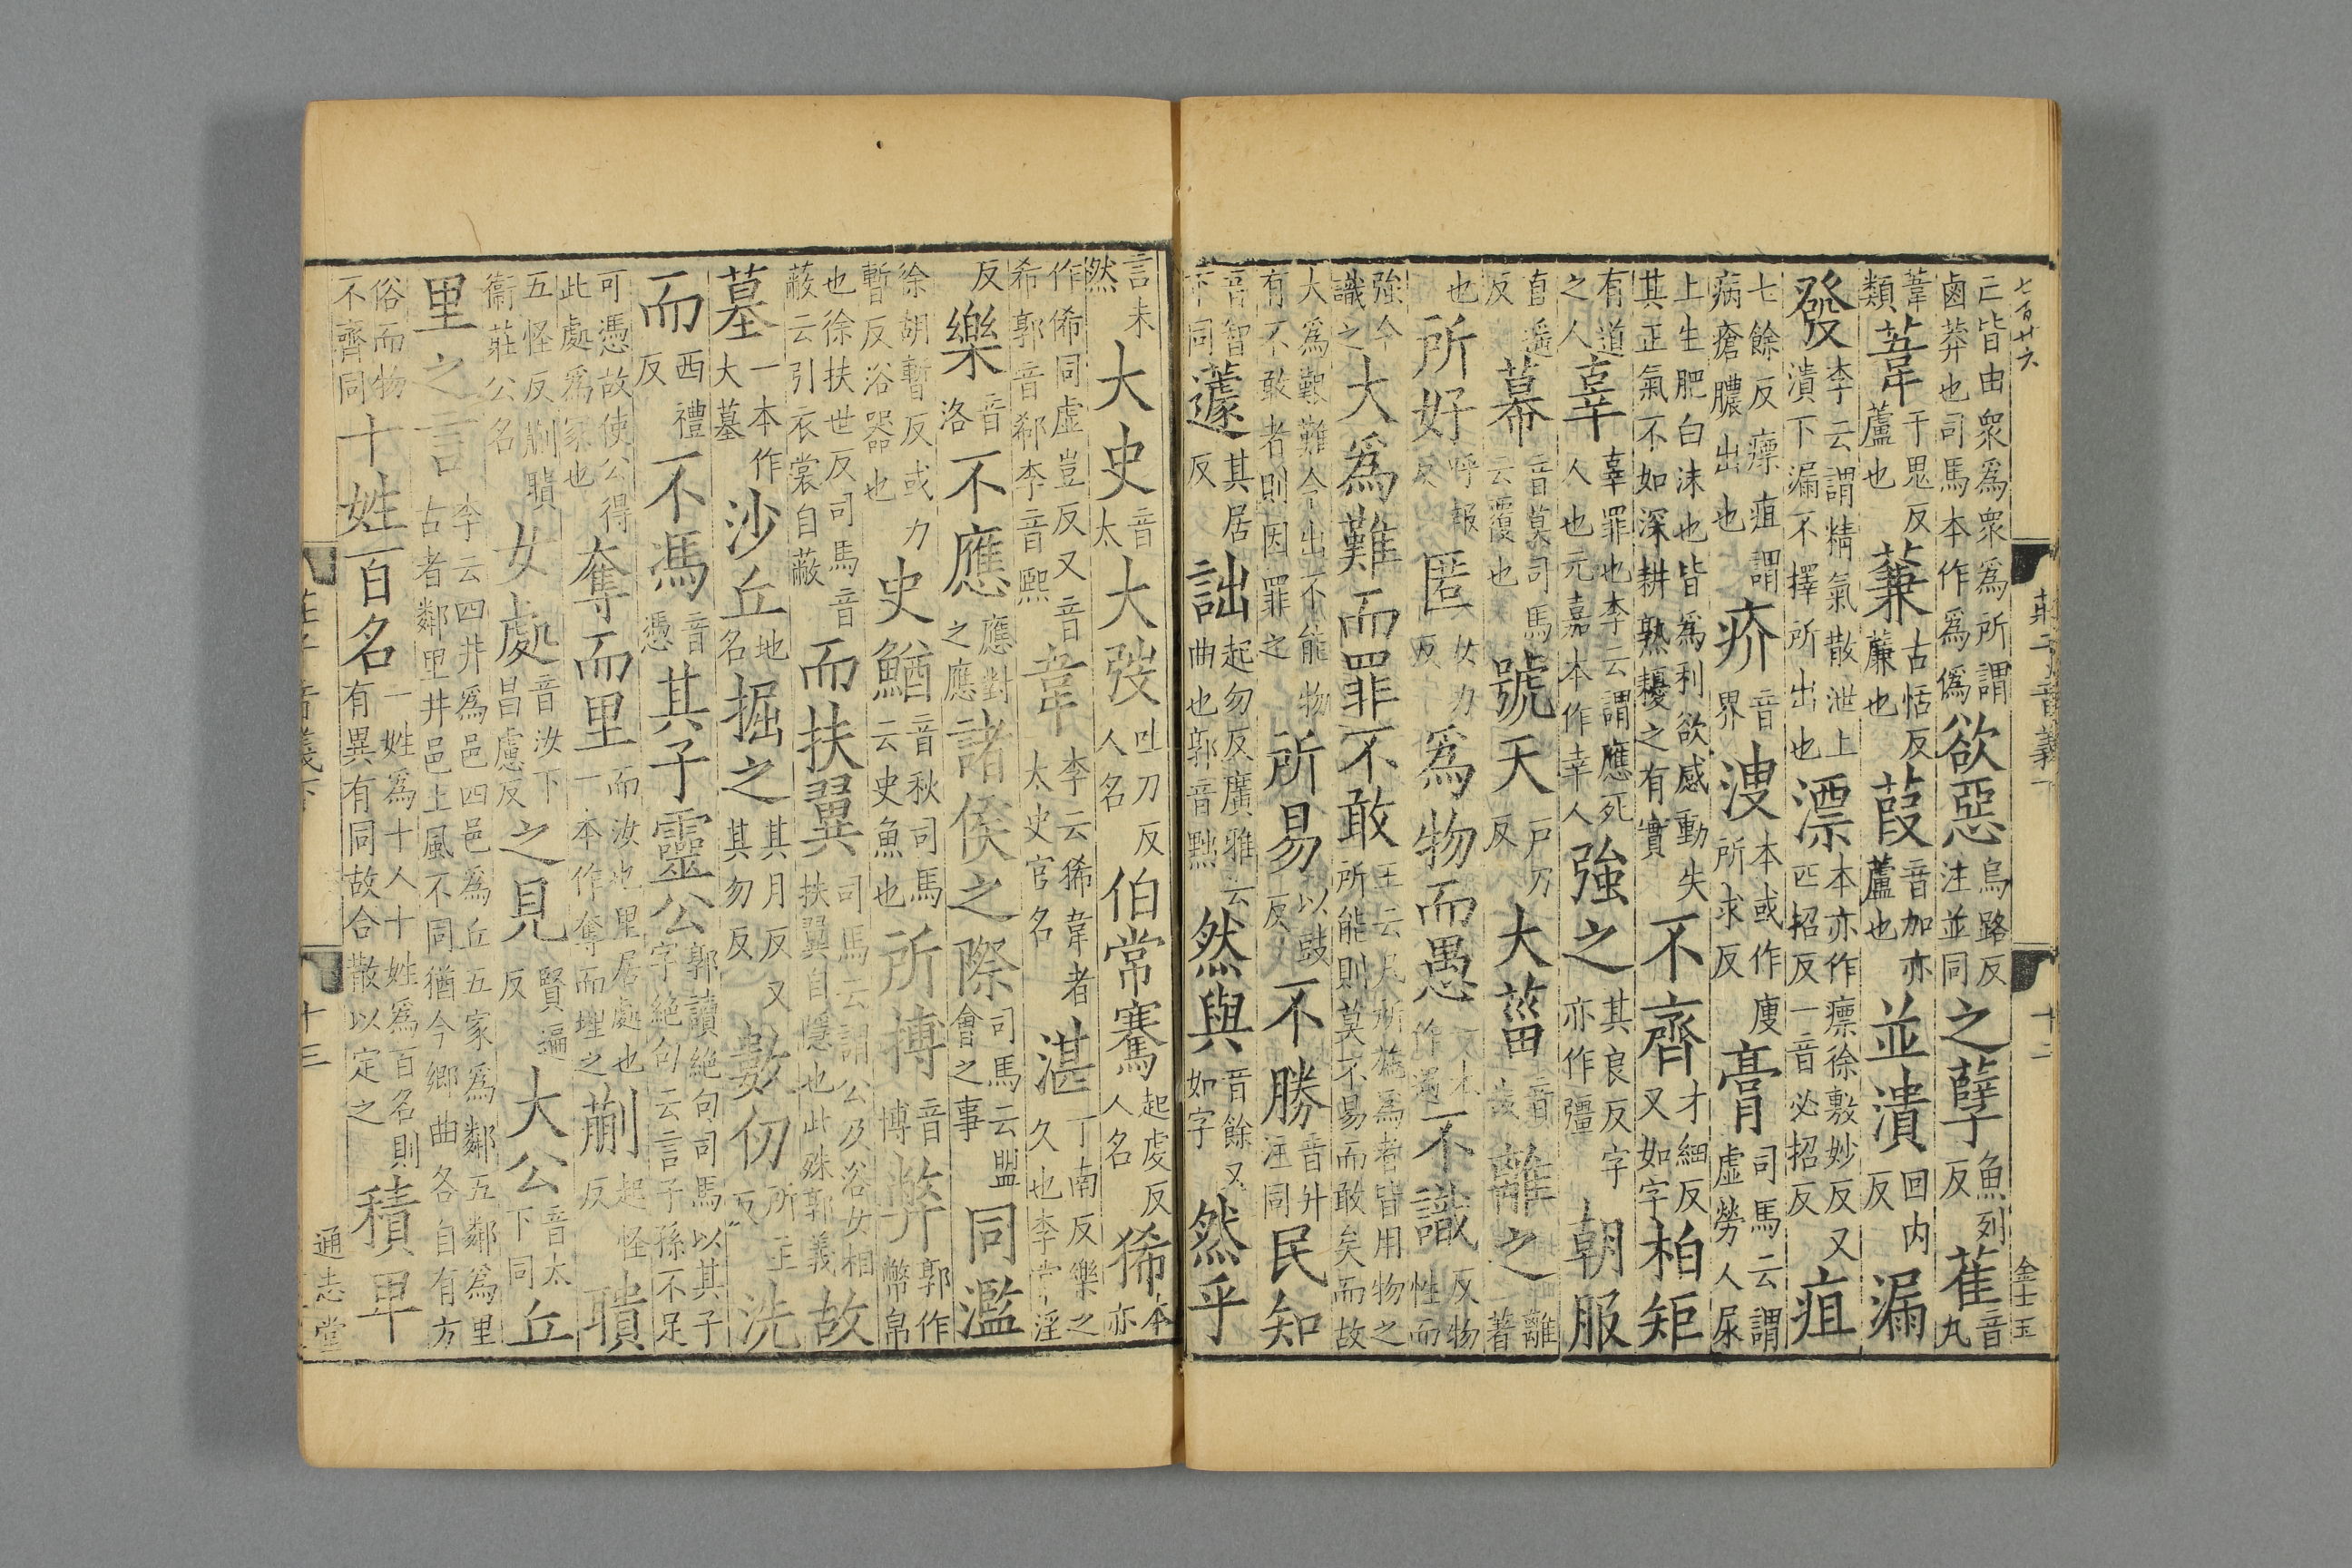 七百廿六 莊子音義下 十二 金士玉
己皆由衆爲衆爲所謂鹵莽也司馬本作爲僞欲惡烏路反注並同之孽魚列反萑音丸
葦類葦于鬼反蘆也蒹古恬反薕也葭音加亦蘆也並潰回内反漏
發李云謂精氣散泄上潰下漏不擇所出也漂本亦作瘭徐敷妙反又匹招反一音必招反疽
七餘反瘭疽謂病瘡膿出也疥音界溲本或作廋所求反膏司馬云謂虚勞人尿
上生肥白沫也皆爲利欲感動失其正氣不如深耕熟耰之有實不齊才細反又如字柏矩
有道之人辜辜罪也李云謂應死人也元嘉本作幸人強之其良反字亦作彊朝服
直遥反幕音莫司馬云覆也號天户刀反大菑音哉離之離著
也所好呼報反匿女力反爲物而愚一本作遇不識反物性而
強令識之大爲難而罪不敢王云凡所施爲者皆用物之所能則莫不易而敢矣而故
大爲艱難令出不能物有不敢者則因罪之所易以豉反不勝音升注同民知
音智下同蘧其居反詘起勿反廣雅云曲也郭音黜然與音餘又如字然乎
言未然大史音太大弢吐刀反人名伯常騫起虔反人名狶本亦
作俙同虚豈反又音希郭音郗李音熙韋李云狶韋者太史官名湛丁南反樂之久也李常淫
反樂音洛不應應對之應諸侯之際司馬云盟會之事同濫
徐胡暫反或力暫反浴器也史鰌音秋司馬云史魚也所搏音博弊郭作幣帛
也徐扶世反司馬音蔽云引衣裳自蔽而扶翼司馬云謂公及浴女相扶翼自隱也此殊郭義故
墓一本作大墓沙丘地名掘之其月反又其勿反數仞所主反洗
而西禮反不馮音憑其子靈公郭讀絶句司馬以其子字絶句云言子孫不足
可憑故使公得此處爲冢也奪而里而汝也里居處也一本作奪而埋之蒯起怪反聵
五怪反蒯聵衞莊公名女處音汝下昌慮反之見賢遍反大公音太下同丘
里之言李云四井爲邑四邑爲丘五家爲鄰五鄰爲里古者鄰里井邑土風不同猶今鄉曲各自有方
俗而物不齊同十姓百名一姓爲十人十姓爲百名則有異有同故合散以定之積卑
莊子音義下 十三 通志堂